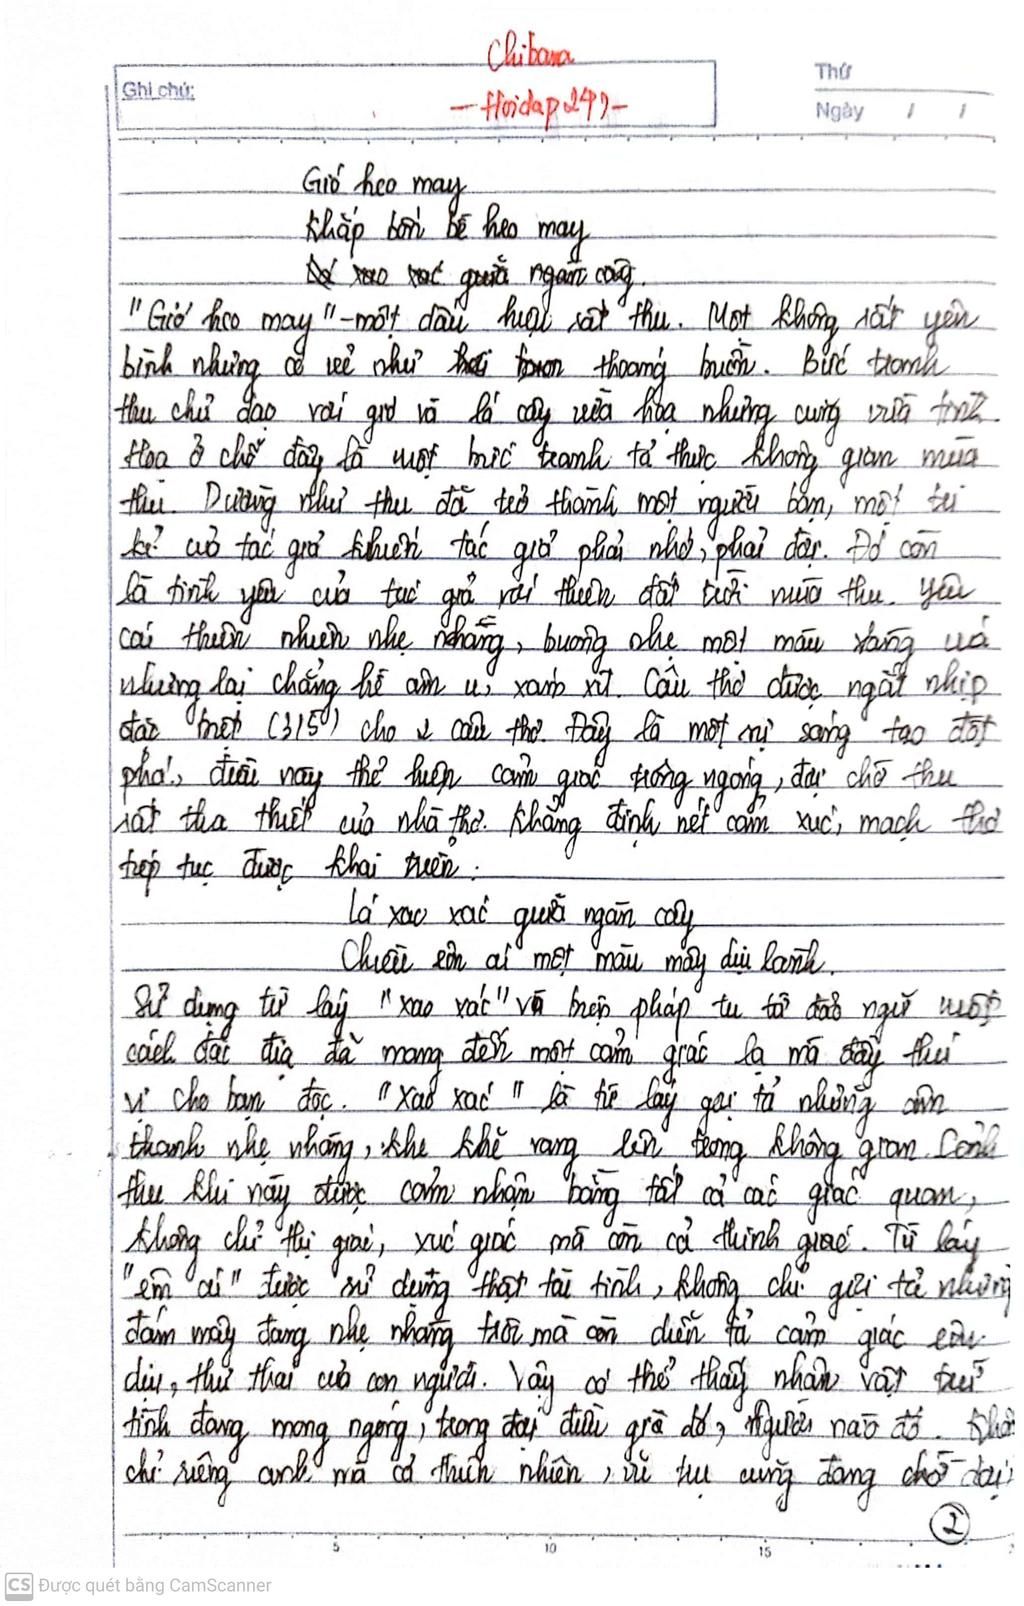 Chibana
Ghi chú:
-Hoidap247-
Thứ
Ngày / /
Gió heo may
Khắp bốn bề heo may
xao xác giữa ngàn cây.
"Gió heo may" - một dấu hiệu rất thu. Một không rất yên
bình nhưng có vẻ như thoáng buồn. Bức tranh
thu chủ đạo với gió và lá cây vừa họa nhưng cũng vừa tình.
Họa ở chỗ đây là một bức tranh tả thực không gian mùa
thu. Dường như thu đã trở thành một người bạn, một tri
kỉ của tác giả khiến tác giả phải nhớ, phải đợi. Đó còn
là tình yêu của tác giả với thiên đất trời mùa thu. Yêu
cái thiên nhiên nhẹ nhàng, buông nhẹ một màu vàng
nhưng lại chẳng hề âm u, xám xịt. Câu thơ được ngắt nhịp
đặc biệt (3/5) cho 2 câu thơ. Đây là một sự sáng tạo đột
phá, điều này thể hiện cảm giác trông ngóng, đợi chờ thu
rất tha thiết của nhà thơ. Khẳng định nét cảm xúc, mạch thơ
tiếp tục được khai triển:
Lá xao xác giữa ngàn cây
Chiều êm ái một màu mây dịu lành.
Sử dụng từ láy "xao xác" và biện pháp tu từ đảo ngữ một
cách đặc địa đã mang đến một cảm giác lạ mà đầy thú
vị cho bạn đọc. "Xao xác" là từ láy gợi tả những âm
thanh nhẹ nhàng, khe khẽ vang lên trong không gian. Cảnh
thu khi này được cảm nhận bằng tất cả các giác quan,
không chỉ thị giác, xúc giác mà còn cả thính giác. Từ láy
"êm ái" được sử dụng thật tài tình, không chỉ gợi tả những
đám mây đang nhẹ nhàng trôi mà còn diễn tả cảm giác êm
dịu, thư thái của con người. Vậy có thể thấy nhân vật trữ
tình đang mong ngóng, trông đợi điều gì đó, người nào đó. Khô
chỉ riêng anh mà cả thiên nhiên, vũ trụ cũng đang chờ đợi,
2
5 10 15
CS Được quét bằng CamScanner